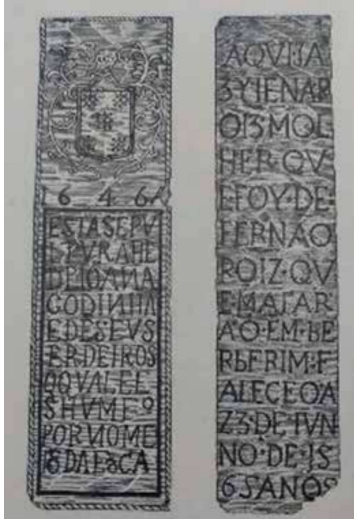 1646
ESTASEPV
LTVRAHE
DE IOANA
GODINHA
E DE SEVS
ERDEIROS
O QVAL E E
S HVM Fº
POR NOME
AQVI IA
3 Y IENAR
O I3 MOL
HER QV
E FOY DE
FERNAO
ROIZ QV
E MATAR
AO EM BE
RBERIM F
ALECEO A
Z3 DE IVN
NO DE JS
6S ANOS